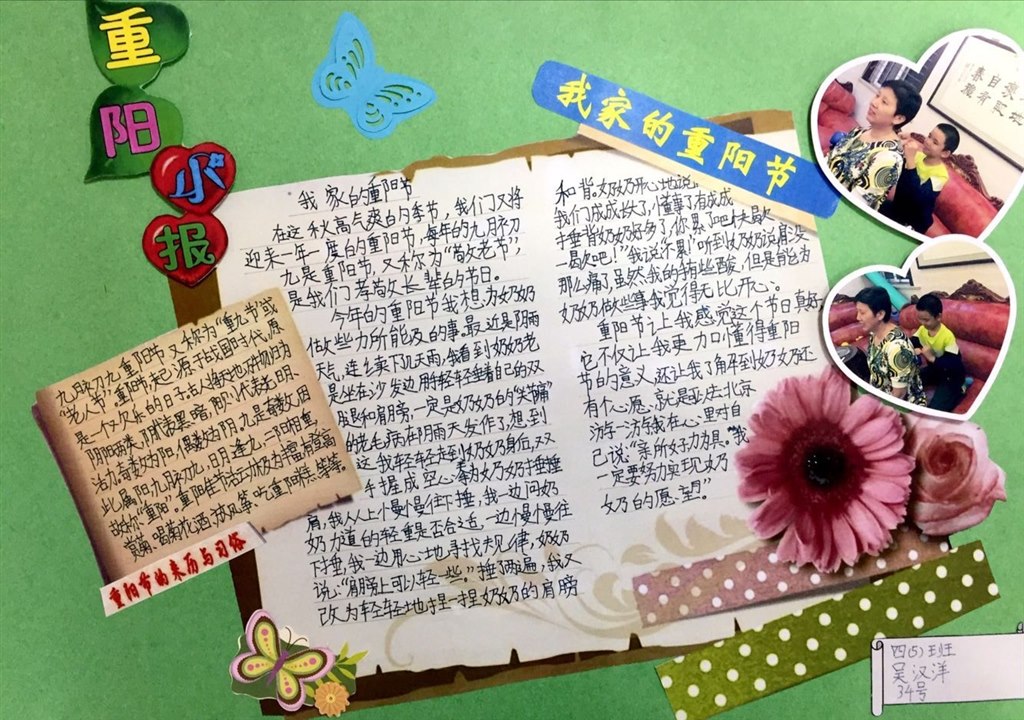 重阳小报
我家的重阳节
春自
我家的重阳节
在这秋高气爽的季节，我们又将
迎来一年一度的重阳节，每年的九月初
九是重阳节，又称为“敬老节”，
是我们孝敬长辈的节日。
今年的重阳节我想为奶奶
做些力所能及的事。最近是阴雨
天气，连续下几天雨，我看到奶奶老
是坐在沙发边用轻轻捶着自己的双
腿和肩膀，一定是奶奶的关节痛
的老毛病在阴雨天发作了，想到
这我轻轻走到奶奶身后，双
手握成空心拳为奶奶捶捶
肩，我从上慢慢往下捶，我一边问奶
奶力道的轻重是否合适，一边慢慢往
下捶，我一边用心地寻找规律，奶奶
说：“肩膀上可以轻一些。”捶了两遍，我又
改为轻轻地捏一捏奶奶的肩膀
和背，奶奶开心地说：
我们成成长大了，懂事了，有成成
捶背奶奶好多了，你累了吧，快歇
一歇吧！”我说“不累！”听到奶奶说肩没
那么痛了，虽然我的手有些酸，但是能为
奶奶做些事我觉得无比开心。
重阳节让我感觉这个节日真好，
它不仅让我更加懂得重阳
节的意义，还让我了解到奶奶还
有个心愿，就是去北京
游一游，我在心里对自
己说：“亲所好，力为具。”我
一定要努力实现奶
奶的愿望。”
九月初九重阳节，又称为“重九节”或
“老人节”，重阳节起源于战国时代，原
是一个欢乐的日子。古人将天地万物归为
阴阳两类，阴代表黑暗，阳则代表光明、
活力。奇数为阳，偶数为阴。九是奇数，因
此属阳，九月初九，日月逢九，二阳相重，
故称“重阳”。重阳佳节活动极为丰富，有登高、
赏菊、喝菊花酒、放风筝、吃重阳糕、等等。
重阳节的来历与习俗
四(5)班
吴汉洋
34号